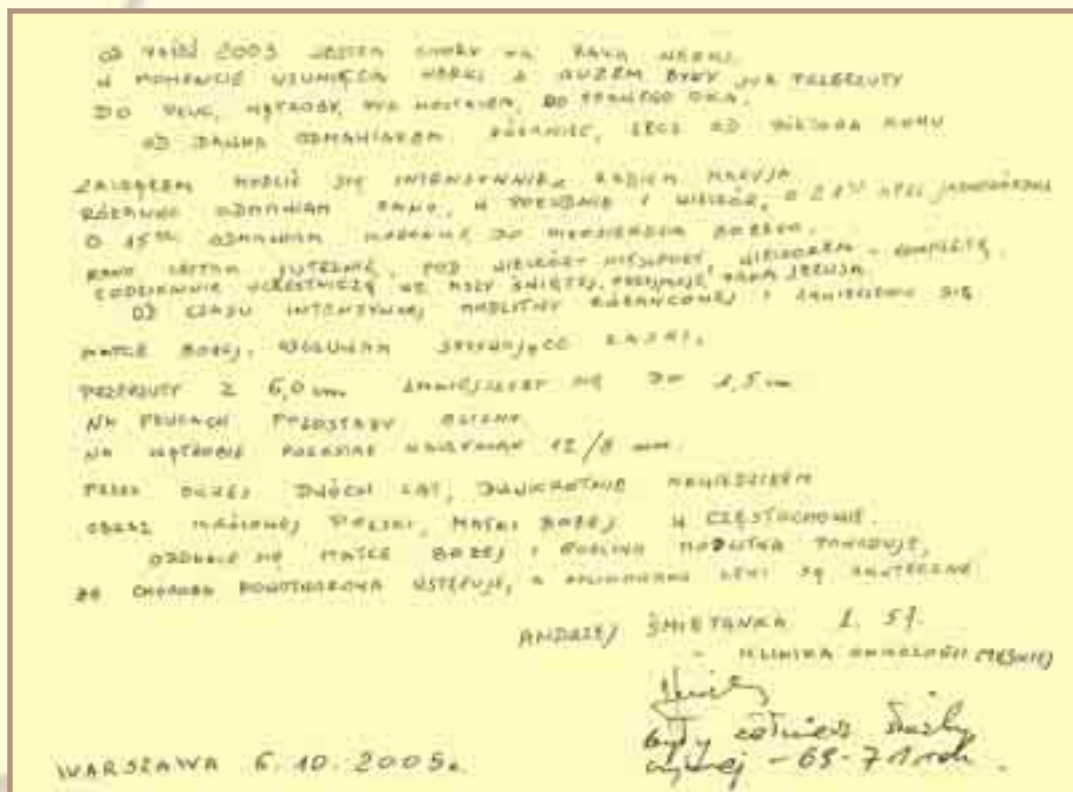 2003 JESTEM CHORY NA RAKA NERKI.
W MOMENCIE USUNIĘCIA NERKI Z GUZEM BYŁY JUŻ PRZERZUTY
DO PŁUC, WĄTROBY, DO PRAWEGO OKA.
OD DAWNA ODMAWIAŁEM RÓŻANIEC, LECZ OD ROKU
ZACZĄŁEM MODLIĆ SIĘ INTENSYWNIE Z RADIEM MARYJA.
RÓŻANIEC ODMAWIAM RANO, W POŁUDNIE I WIECZÓR, O 21 APEL JASNOGÓRSKI
O 15 ODMAWIAM KORONKĘ DO MIŁOSIERDZIA BOŻEGO.
RANO JUTRZNIĘ, POD WIECZÓR NIESZPORY, WIECZOREM - KOMPLETĘ.
CODZIENNIE UCZESTNICZĘ WE MSZY ŚWIĘTEJ, PRZYJMUJĘ PANA JEZUSA.
OD CZASU INTENSYWNEJ MODLITWY RÓŻAŃCOWEJ I ZAWIERZENIU SIĘ
MATCE BOŻEJ, ŁASKI.
PRZERZUTY Z 6,0 cm ZMNIEJSZYŁY SIĘ DO 1,5 cm
NA PŁUCACH POZOSTAŁY BLIZNY
NA WĄTROBIE 12/8 mm.
PRZEZ OKRES DWÓCH LAT, DWUKROTNIE NAWIEDZIŁEM
OBRAZ KRÓLOWEJ POLSKI, MATKI BOŻEJ W CZĘSTOCHOWIE.
ODDANIE SIĘ MATCE BOŻEJ I MODLITWA POWODUJE,
ŻE CHOROBA NOWOTWOROWA USTĘPUJE, A LEKI SĄ SKUTECZNE
ANDRZEJ ŚMIETANKA L. 57.
- KLINIKA ONKOLOGII
były żołnierz Służby
- 69-71 rok.
WARSZAWA 6.10.2005.